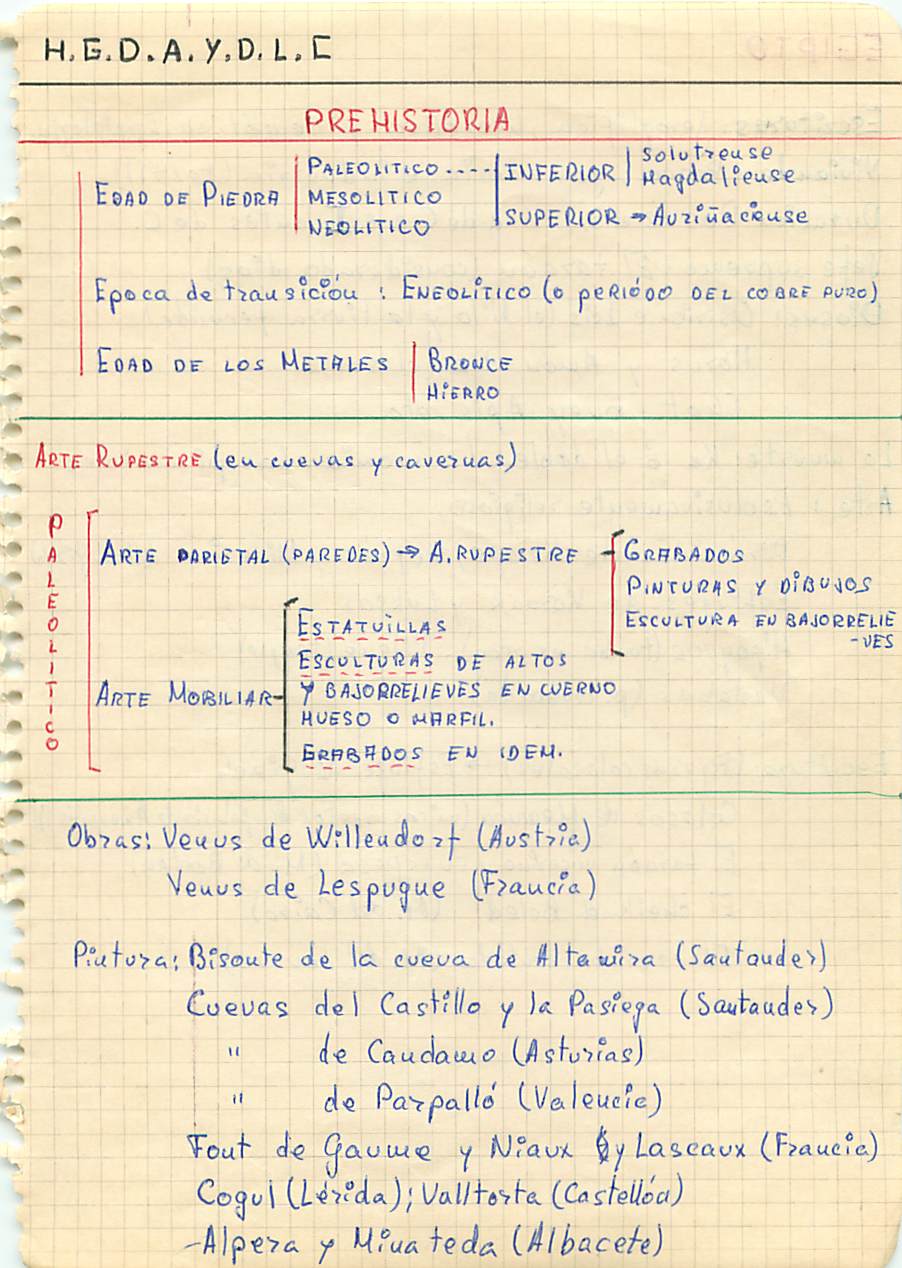 H.G.D.A.Y.D.L.C
PREHISTORIA
EDAD DE PIEDRA
PALEOLITICO ....
MESOLITICO
NEOLITICO
INFERIOR
Solutrense
Magdaliense
SUPERIOR → Auriñaciense
Epoca de transición : ENEOLÍTICO (O PERIÓDO DEL COBRE PURO)
EDAD DE LOS METALES
BRONCE
HIERRO
ARTE RUPESTRE (en cuevas y cavernas)
PALEOLITICO
ARTE PARIETAL (PAREDES) → A. RUPESTRE
GRABADOS
PINTURAS Y DIBUJOS
ESCULTURA EN BAJORRELIE
-VES
ARTE MOBILIAR
ESTATUILLAS
ESCULTURAS DE ALTOS
Y BAJORRELIEVES EN CUERNO
HUESO O MARFIL.
GRABADOS EN IDEM.
Obras: Venus de Willendorf (Austria)
Venus de Lespugue (Francia)
Pintura: Bisonte de la cueva de Altamira (Santander)
Cuevas del Castillo y la Pasiega (Santander)
" de Candamo (Asturias)
" de Parpalló (Valencia)
Font de Gaume y Niaux y Lascaux (Francia)
Cogul (Lérida); Valltorta (Castellón)
-Alpera y Minateda (Albacete)